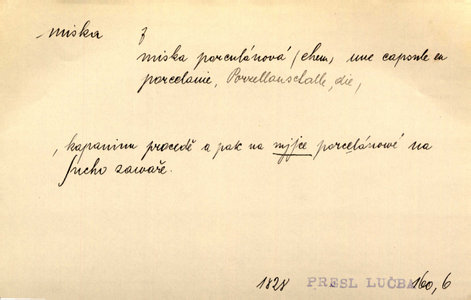 miska f
miska porculánová /chem, une capsule en
porcelaine, Porzellanschale, die,
, kapaninu procedě a pak na myſſce porcelánowé na
ſucho zawaře.
1828 PRESL LUČBA 160,6